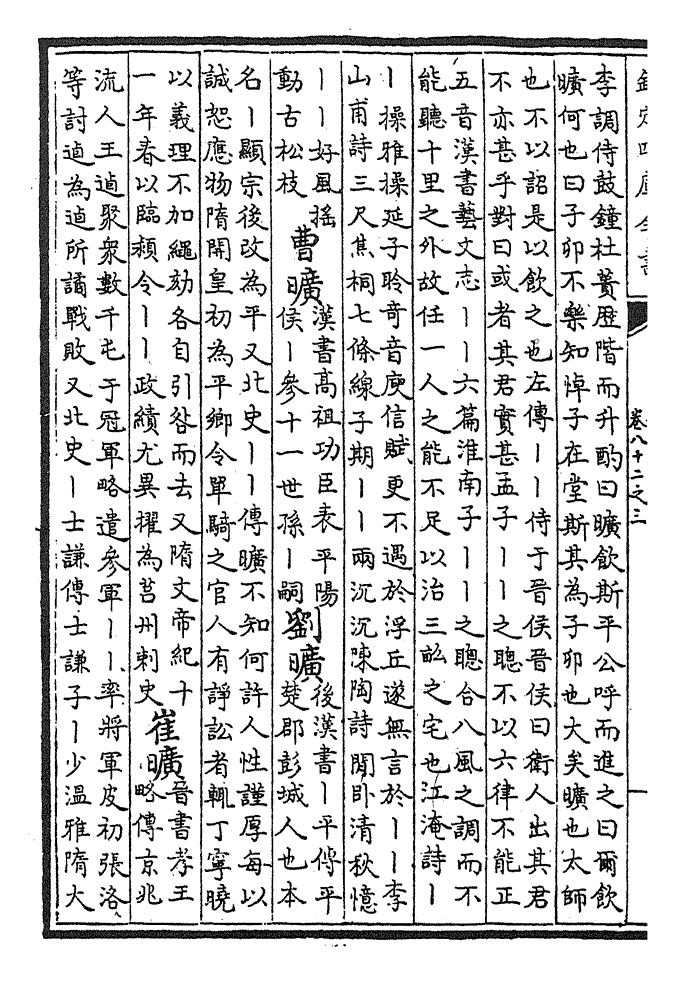 欽定四庫全書　卷八十二之三
李調侍鼓鐘杜蕢歴階而升酌曰曠飲斯平公呼而進之曰爾飲
曠何也曰子卯不樂知悼子在堂斯其為子卯也大矣曠也太師
也不以詔是以飲之也左傳丨丨侍于晉侯晉侯曰衛人出其君
不亦甚乎對曰或者其君實甚孟子丨丨之聰不以六律不能正
五音漢書藝文志丨丨六篇淮南子丨丨之聰合八風之調而不
能聽十里之外故任一人之能不足以治三畝之宅也江淹詩丨
丨操雅操延子聆奇音庾信賦更不遇於浮丘遂無言於丨丨李
山甫詩三尺焦桐七條線子期丨丨兩沉沉陳陶詩閒卧清秋憶
丨丨好風揺
動古松枝
曹曠
漢書高祖功臣表平陽
侯丨參十一世孫丨嗣
劉曠
後漢書丨平傳平
楚郡彭城人也本
名丨顯宗後改為平又北史丨丨傳曠不知何許人性謹厚每以
誠恕應物隋開皇初為平鄉令單騎之官人有諍訟者輒丁寧曉
以義理不加繩劾各自引咎而去又隋文帝紀十
一年春以臨潁令丨丨政績尤異擢為莒州刺史
崔曠
晉書孝王
略傳京兆
流人王逌聚衆數千屯于冠軍略遣參軍丨丨率將軍皮初張洛
等討逌為逌所譎戰敗又北史丨士謙傳士謙子丨少溫雅隋大